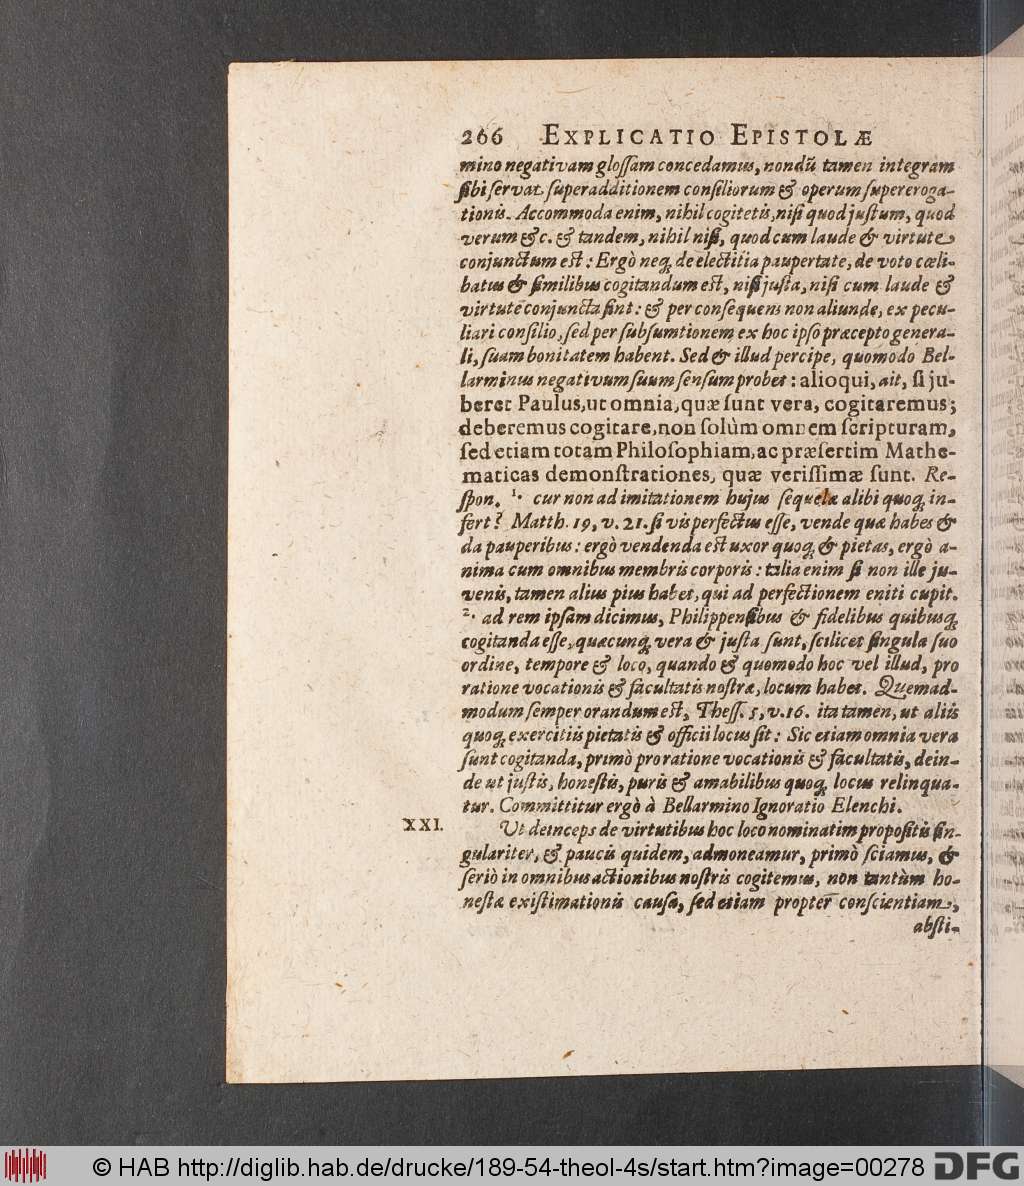 266 EXPLICATIO EPISTOLÆ
mino negativam gloſſam concedamus, nondũ tamen integram
ſibi ſervat ſuperadditionem conſiliorum & operum ſupereroga-
tionis. Accommoda enim, nihil cogitetis, niſi quod juſtum, quod
verum &c. & tandem, nihil niſi, quod cum laude & virtute
conjunctum eſt: Ergò neq; de electitia paupertate, de voto cœli-
batus & ſimilibus cogitandum eſt, niſi juſta, niſi cum laude &
virtute conjuncta ſint: & per conſequens non aliunde, ex pecu-
liari conſilio, ſed per ſubſumtionem ex hoc ipſo præcepto genera-
li, ſuam bonitatem habent. Sed & illud percipe, quomodo Bel-
larminus negativum ſuum ſenſum probet: alioqui, ait, ſi ju-
beret Paulus, ut omnia, quæ ſunt vera, cogitaremus;
deberemus cogitare, non ſolùm omnem ſcripturam,
ſed etiam totam Philoſophiam, ac præſertim Mathe-
maticas demonſtrationes, quæ veriſſimæ ſunt. Re-
ſpon. 1. cur non ad imitationem hujus ſequelæ alibi quoq; in-
fert? Matth. 19, v. 21. ſi vis perfectus eſſe, vende quæ habes &
da pauperibus: ergò vendenda eſt uxor quoq; & pietas, ergò a-
nima cum omnibus membris corporis: talia enim ſi non ille ju-
venis, tamen alius pius habet, qui ad perfectionem eniti cupit.
2. ad rem ipſam dicimus, Philippenſibus & fidelibus quibusq;
cogitanda eſſe, quæcunq; vera & juſta ſunt, ſcilicet ſingula ſuo
ordine, tempore & loco, quando & quomodo hoc vel illud, pro
ratione vocationis & facultatis noſtræ, locum habet. Quemad-
modum ſemper orandum eſt, Theſſ. 5, v. 16. ita tamen, ut aliis
quoq; exercitiis pietatis & officii locus ſit: Sic etiam omnia vera
ſunt cogitanda, primò pro ratione vocationis & facultatis, dein-
de ut juſtis, honeſtis, puris & amabilibus quoq; locus relinqua-
tur. Committitur ergò à Bellarmino Ignoratio Elenchi.
XXI. Ut deinceps de virtutibus hoc loco nominatim propoſitis ſin-
gulariter, & paucis quidem, admoneamur, primò ſciamus, &
ſeriò in omnibus actionibus noſtris cogitemus, non tantùm ho-
neſtæ exiſtimationis cauſa, ſed etiam propter conſcientiam,
abſti-
© HAB http://diglib.hab.de/drucke/189-54-theol-4s/start.htm?image=00278 DFG